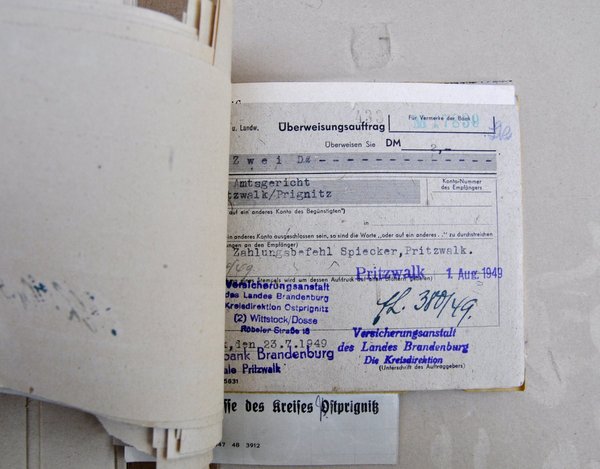 433
Für Vermerke der Bank
u. Landw. Überweisungsauftrag
Überweisen Sie DM 2,-
Zwei DM - - - - - - - - - - - - - - - -
Amtsgericht
tzwalk/Prignitz
Konto-Nummer
des Empfängers
auf ein anderes Konto des Begünstigten")
in
ein anderes Konto ausgeschlossen sein, so sind die Worte „oder auf ein anderes . ." zu durchstreichen
ungen an den Empfänger)
Zahlungsbefehl Spiecker, Pritzwalk.
Stempels wird um dessen Aufdruck
Pritzwalk 1. Aug. 1949
Versicherungsanstalt
des Landes Brandenburg
Kreisdirektion Ostprignitz
(2) Wittstock/Dosse
Röbeler Straße 18
380/49.
,den 23.7.1949
Versicherungsanstalt
des Landes Brandenburg
Die Kreisdirektion
(Unterschrift des Auftraggebers)
bank Brandenburg
ale Pritzwalk
5631
sse des Kreises Ostprignitz
47 48 3912